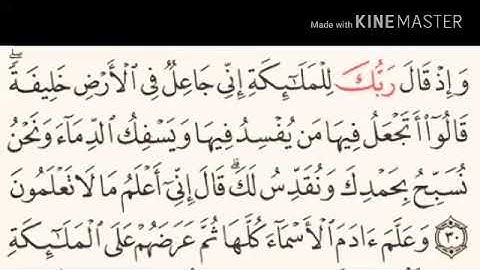 Made with KINEMASTER
وَإِذْ قَالَ رَبُّكَ لِلْمَلَـٰٓئِكَةِ إِنِّى جَاعِلٌ فِى ٱلْأَرْضِ خَلِيفَةًۖ
قَالُوٓا۟ أَتَجْعَلُ فِيهَا مَن يُفْسِدُ فِيهَا وَيَسْفِكُ ٱلدِّمَآءَ وَنَحْنُ
نُسَبِّحُ بِحَمْدِكَ وَنُقَدِّسُ لَكَۖ قَالَ إِنِّىٓ أَعْلَمُ مَا لَا تَعْلَمُونَ
٣٠ وَعَلَّمَ ءَادَمَ ٱلْأَسْمَآءَ كُلَّهَا ثُمَّ عَرَضَهُمْ عَلَى ٱلْمَلَـٰٓئِكَةِ